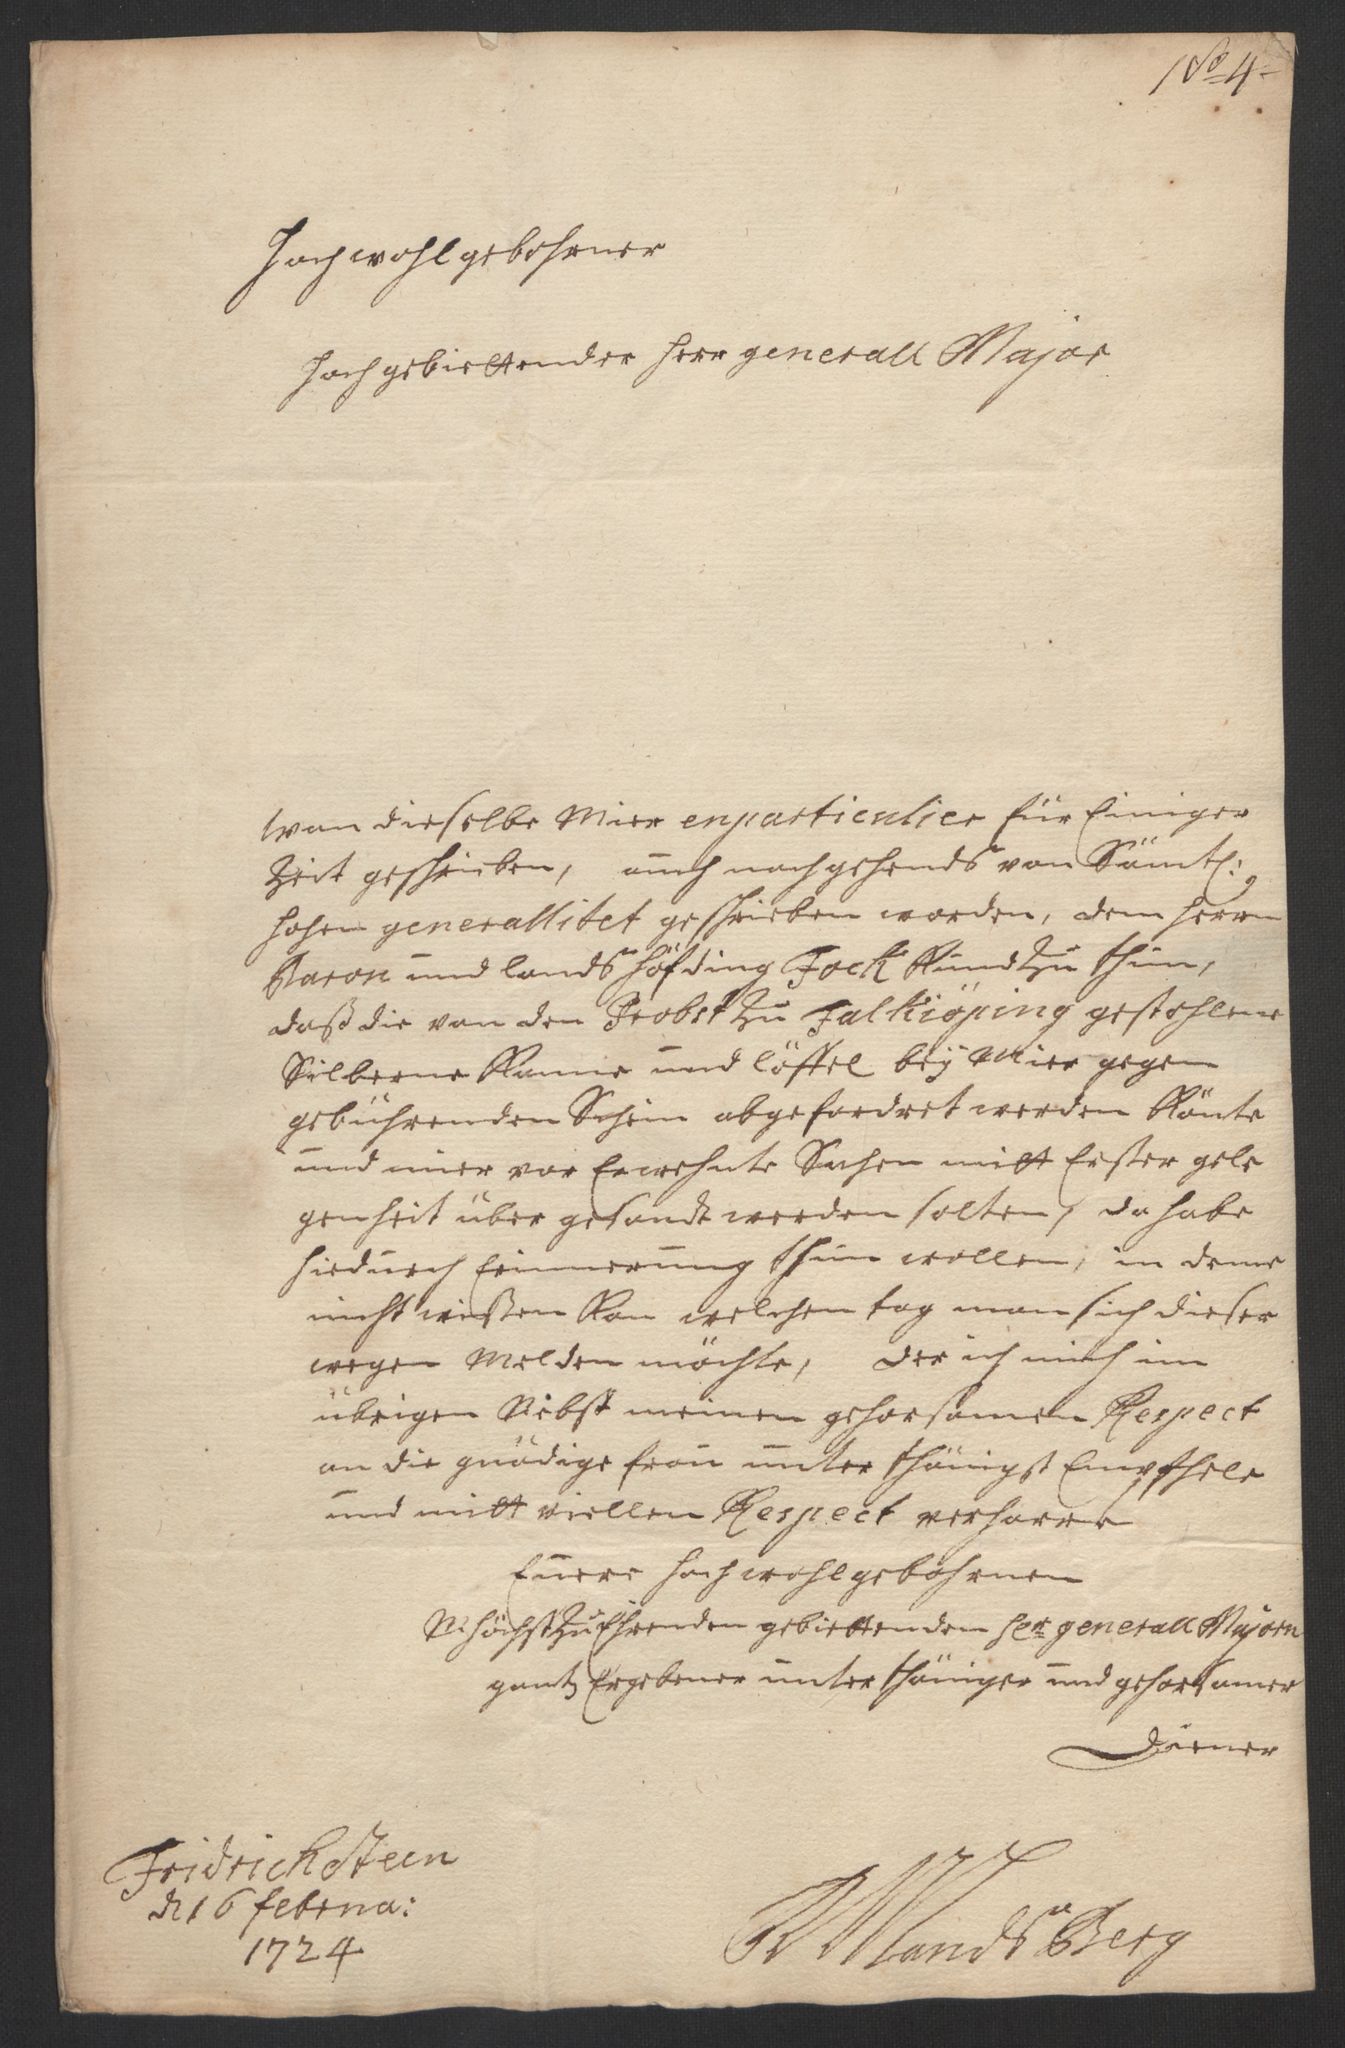 No 4
Hochwohlgebohrner
Hochgebiettender Herr generall Major
Wan dieselbe Mier enparticulier für Einiger
Zeit geschrieben, auch nachgehends von Sämtl:
hohen generallitet geschrieben worden, dem Herrn
Baron und landshöfding Fock Kund zu thun,
daß die von den Probst zu Falkiöping gestohlene
Silberne Kanne und löffel beÿ Mier gegen
gebührenden Schein abgefordret werden Könte
und mier vor Erwehnte Sachen mitt Erster gele
genheit über gesandt werden solten, da habe
hiedurch Erinnerung thun wollen, in deme
nicht wißen Kan welchen tag man sich dieser
wegen Melden möchte, der ich mich im
übrigen Nebst meinen gehorsamen Respect
an die gnädige frau unterthänigst Empfhele
und mitt viellen Respect verharre
Euere Hochwohlgebohrnen
M höchst zu Ehrenden gebiettenden Her generall Majorn
gantz Ergebener unterthäniger und gehorsamer
Diener
Fridrichsteen
d 16 februa:
1724
Landsberg